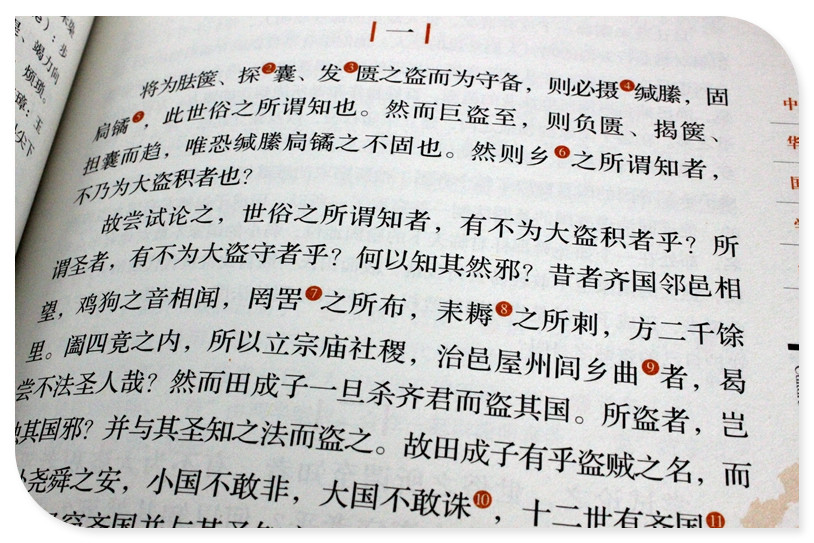 一
将为胠箧、探❷囊、发❸匮之盗而为守备，则必摄❹缄縢，固
扃𫔎❺，此世俗之所谓知也。然而巨盗至，则负匮、揭箧、
担囊而趋，唯恐缄縢扃𫔎之不固也。然则乡❻之所谓知者，
不乃为大盗积者也？
故尝试论之，世俗之所谓知者，有不为大盗积者乎？所
谓圣者，有不为大盗守者乎？何以知其然邪？昔者齐国邻邑相
望，鸡狗之音相闻，罔罟❼之所布，耒耨❽之所刺，方二千馀
里。阖四竟之内，所以立宗庙社稷，治邑屋州闾乡曲❾者，曷
尝不法圣人哉？然而田成子一旦杀齐君而盗其国。所盗者，岂
其国邪？并与其圣知之法而盗之。故田成子有乎盗贼之名，而
尧舜之安，小国不敢非，大国不敢诛❿，十二世有齐国⓫
齐国并与其圣
竭力向
烦琐。
璋：玉
尖下
中
华
国